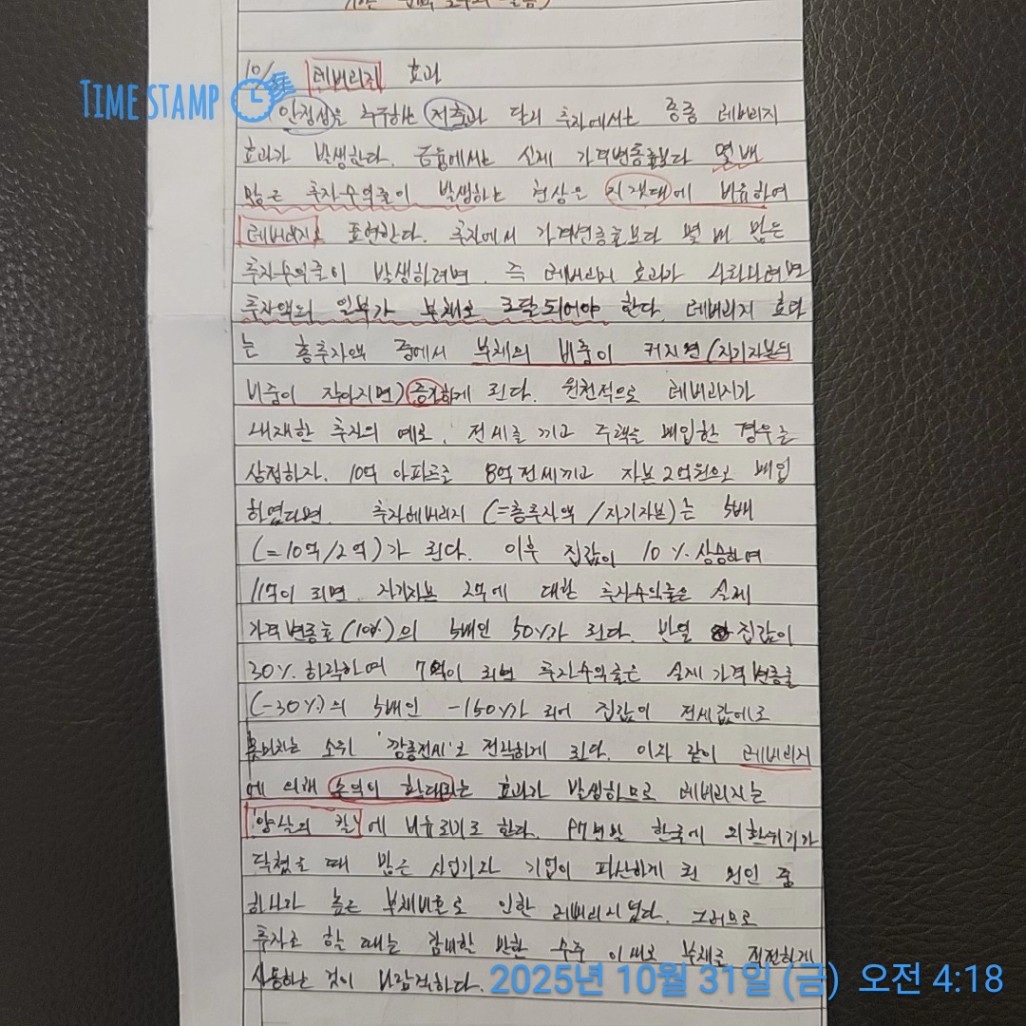 10/ 레버리지 효과
TIME STAMP
안정성을 추구하는 저축과 달리 투자에서는 종종 레버리지
효과가 발생한다. 금융에서는 실제 가격변동률보다 몇 배
많은 투자수익률이 발생하는 현상을 지렛대에 비유하여
레버리지로 표현한다. 투자에서 가격변동률보다 몇 배 많은
투자수익률이 발생하려면, 즉 레버리지 효과가 나타나려면
투자액의 일부가 부채로 조달되어야 한다. 레버리지 효과
는 총투자액 중에서 부채의 비중이 커지면(자기자본의
비중이 작아지면) 증가하게 된다. 원천적으로 레버리지가
내재한 투자의 예로, 전세를 끼고 주택을 매입한 경우를
상정하자. 10억 아파트를 8억 전세끼고 자본 2억원으로 매입
하였다면, 투자레버리지 (=총투자액 / 자기자본)는 5배
(=10억/2억)가 된다. 이후 집값이 10%. 상승하여
11억이 되면 자기자본 2억에 대한 투자수익률은 실제
가격변동률(10%)의 5배인 50%가 된다. 반일 집값이
30%. 하락하여 7억이 되면 투자수익률은 실제 가격변동률
(-30%)의 5배인 -150%가 되어 집값이 전세값에도
못미치는 소위 '깡통전세'로 전락하게 된다. 이와 같이 레버리지
에 의해 손익이 확대되는 효과가 발생하므로 레버리지는
'양날의 칼'에 비유되기도 한다. 97년말 한국에 외환위기가
닥쳤을 때 많은 사업가와 기업이 파산하게 된 원인 중
하나가 높은 부채비율로 인한 레버리지였다. 그러므로
투자를 할 때는 감내할 만한 수준 이내로 부채를 적절하게
사용하는 것이 바람직하다.
2025년 10월 31일 (금) 오전 4:18